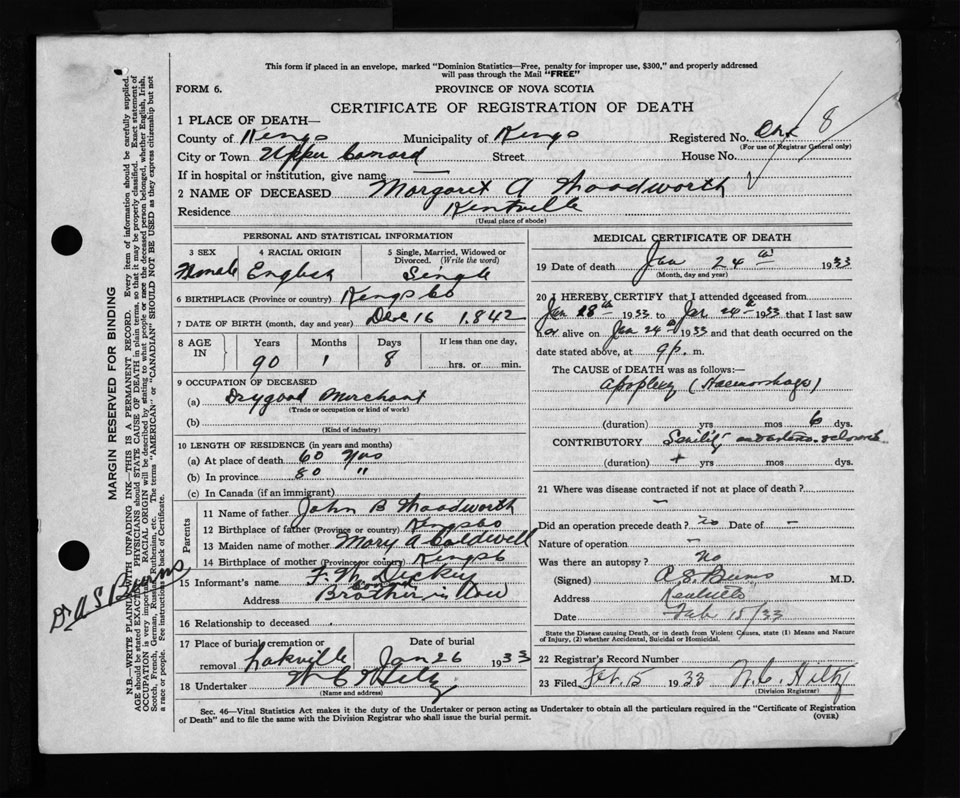 This form if placed in an envelope, marked "Dominion Statistics—Free, penalty for improper use, $300," and properly addressed
will pass through the Mail "FREE"
FORM 6.
PROVINCE OF NOVA SCOTIA
CERTIFICATE OF REGISTRATION OF DEATH
1 PLACE OF DEATH—
County of Kings Municipality of Kings Registered No. 8
(For use of Registrar General only)
City or Town Upper Canard Street House No.
If in hospital or institution, give name —
2 NAME OF DECEASED Margaret A Woodworth
Residence Kentville
(Usual place of abode)
PERSONAL AND STATISTICAL INFORMATION
3 SEX 4 RACIAL ORIGIN 5 Single, Married, Widowed or
Divorced. (Write the word)
Female English Single
6 BIRTHPLACE (Province or country) Kings Co
7 DATE OF BIRTH (month, day and year) Dec 16 1842
8 AGE IN Years Months Days If less than one day,
90 1 8 hrs. or min.
9 OCCUPATION OF DECEASED
(a) Drygood Merchant
(Trade or occupation or kind of work)
(b)
(Kind of industry)
10 LENGTH OF RESIDENCE (in years and months)
(a) At place of death 60 yrs
(b) In province 80 "
(c) In Canada (if an immigrant)
Parents
11 Name of father John B Woodworth
12 Birthplace of father (Province or country) Kings Co
13 Maiden name of mother Mary A Caldwell
14 Birthplace of mother (Province or country) Kings Co
15 Informant's name F. W. Dickey
Address
Brother in Law
16 Relationship to deceased
17 Place of burial, cremation or Date of burial
removal Lakville Jan 26 1933
18 Undertaker W C Hiltz
(Name and address)
MEDICAL CERTIFICATE OF DEATH
19 Date of death Jan 24th 1933
(Month, day and year)
20 I HEREBY CERTIFY that I attended deceased from
Jan 1933 to Jan 24th 1933 that I last saw
h er alive on Jan 24th 1933 and that death occurred on the
date stated above, at 9 p. m.
The CAUSE OF DEATH was as follows:—
Apoplexy (Haemorrhage)
(duration) yrs mos 6 dys.
CONTRIBUTORY Senility and
(duration) + yrs mos dys.
21 Where was disease contracted if not at place of death?
—
Did an operation precede death? no Date of —
Nature of operation —
Was there an autopsy? No
(Signed) A. S. Burns M.D.
Address Kentville
Date Feb 15/33
State the Disease causing Death, or in death from Violent Causes, state (1) Means and Nature
of Injury, (2) whether Accidental, Suicidal or Homicidal.
22 Registrar's Record Number
23 Filed Feb. 15 1933 W. C. Hiltz
(Division Registrar)
Sec. 46—Vital Statistics Act makes it the duty of the Undertaker or person acting as Undertaker to obtain all the particulars required in the "Certificate of Registration
of Death" and to file the same with the Division Registrar who shall issue the burial permit.
(OVER)
MARGIN RESERVED FOR BINDING
N.B.—WRITE PLAINLY WITH UNFADING INK—THIS IS A PERMANENT RECORD. Every item of information should be carefully supplied.
AGE should be stated EXACTLY. PHYSICIANS should STATE CAUSE OF DEATH in plain terms, so that it may be properly classified. Exact statement of
OCCUPATION is very important. RACIAL ORIGIN will be described by stating to what people or race the deceased person belonged, whether English, Irish,
Scotch, French, German, Russian, Ruthenian, etc. The terms "AMERICAN" or "CANADIAN" SHOULD NOT BE USED as they express citizenship but not
a race or people. See instructions on back of Certificate.
Dr A S Burns